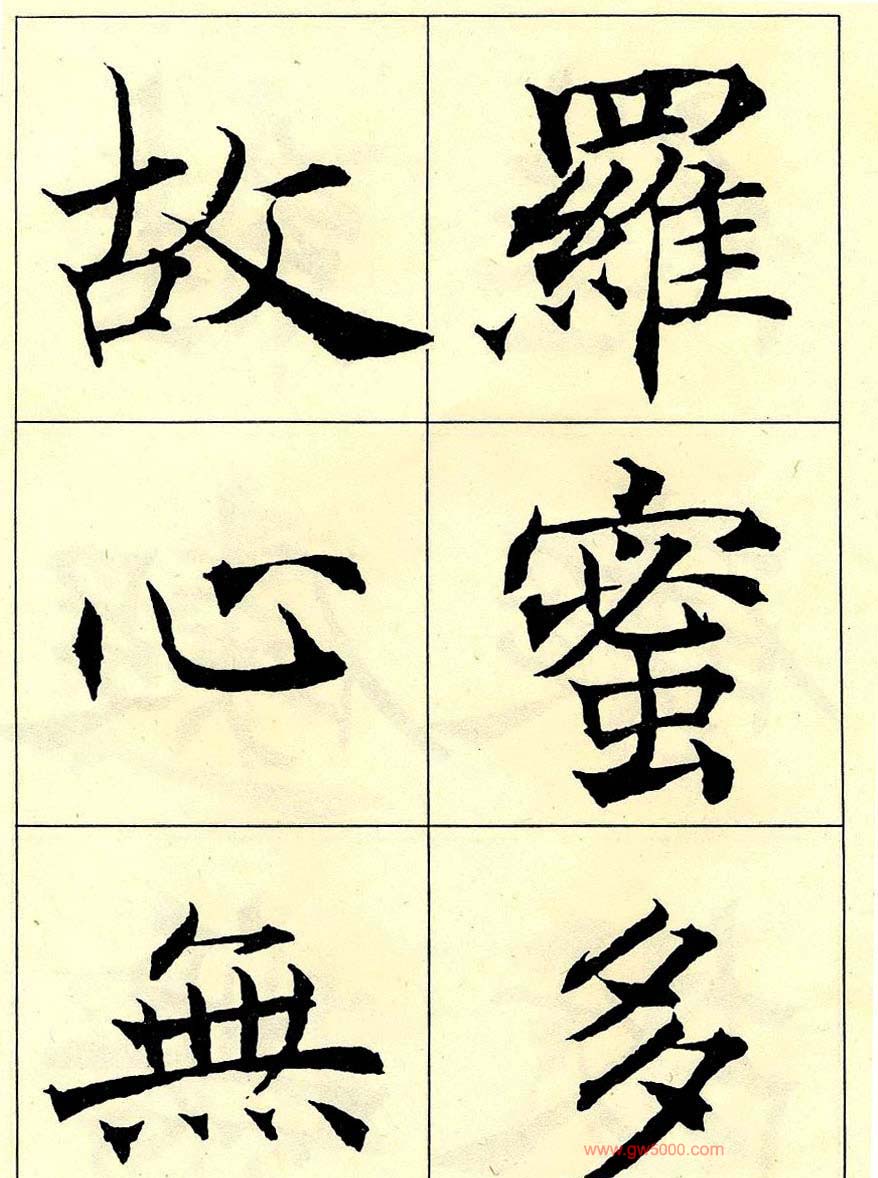 羅蜜多
故心無
www.gw5000.com